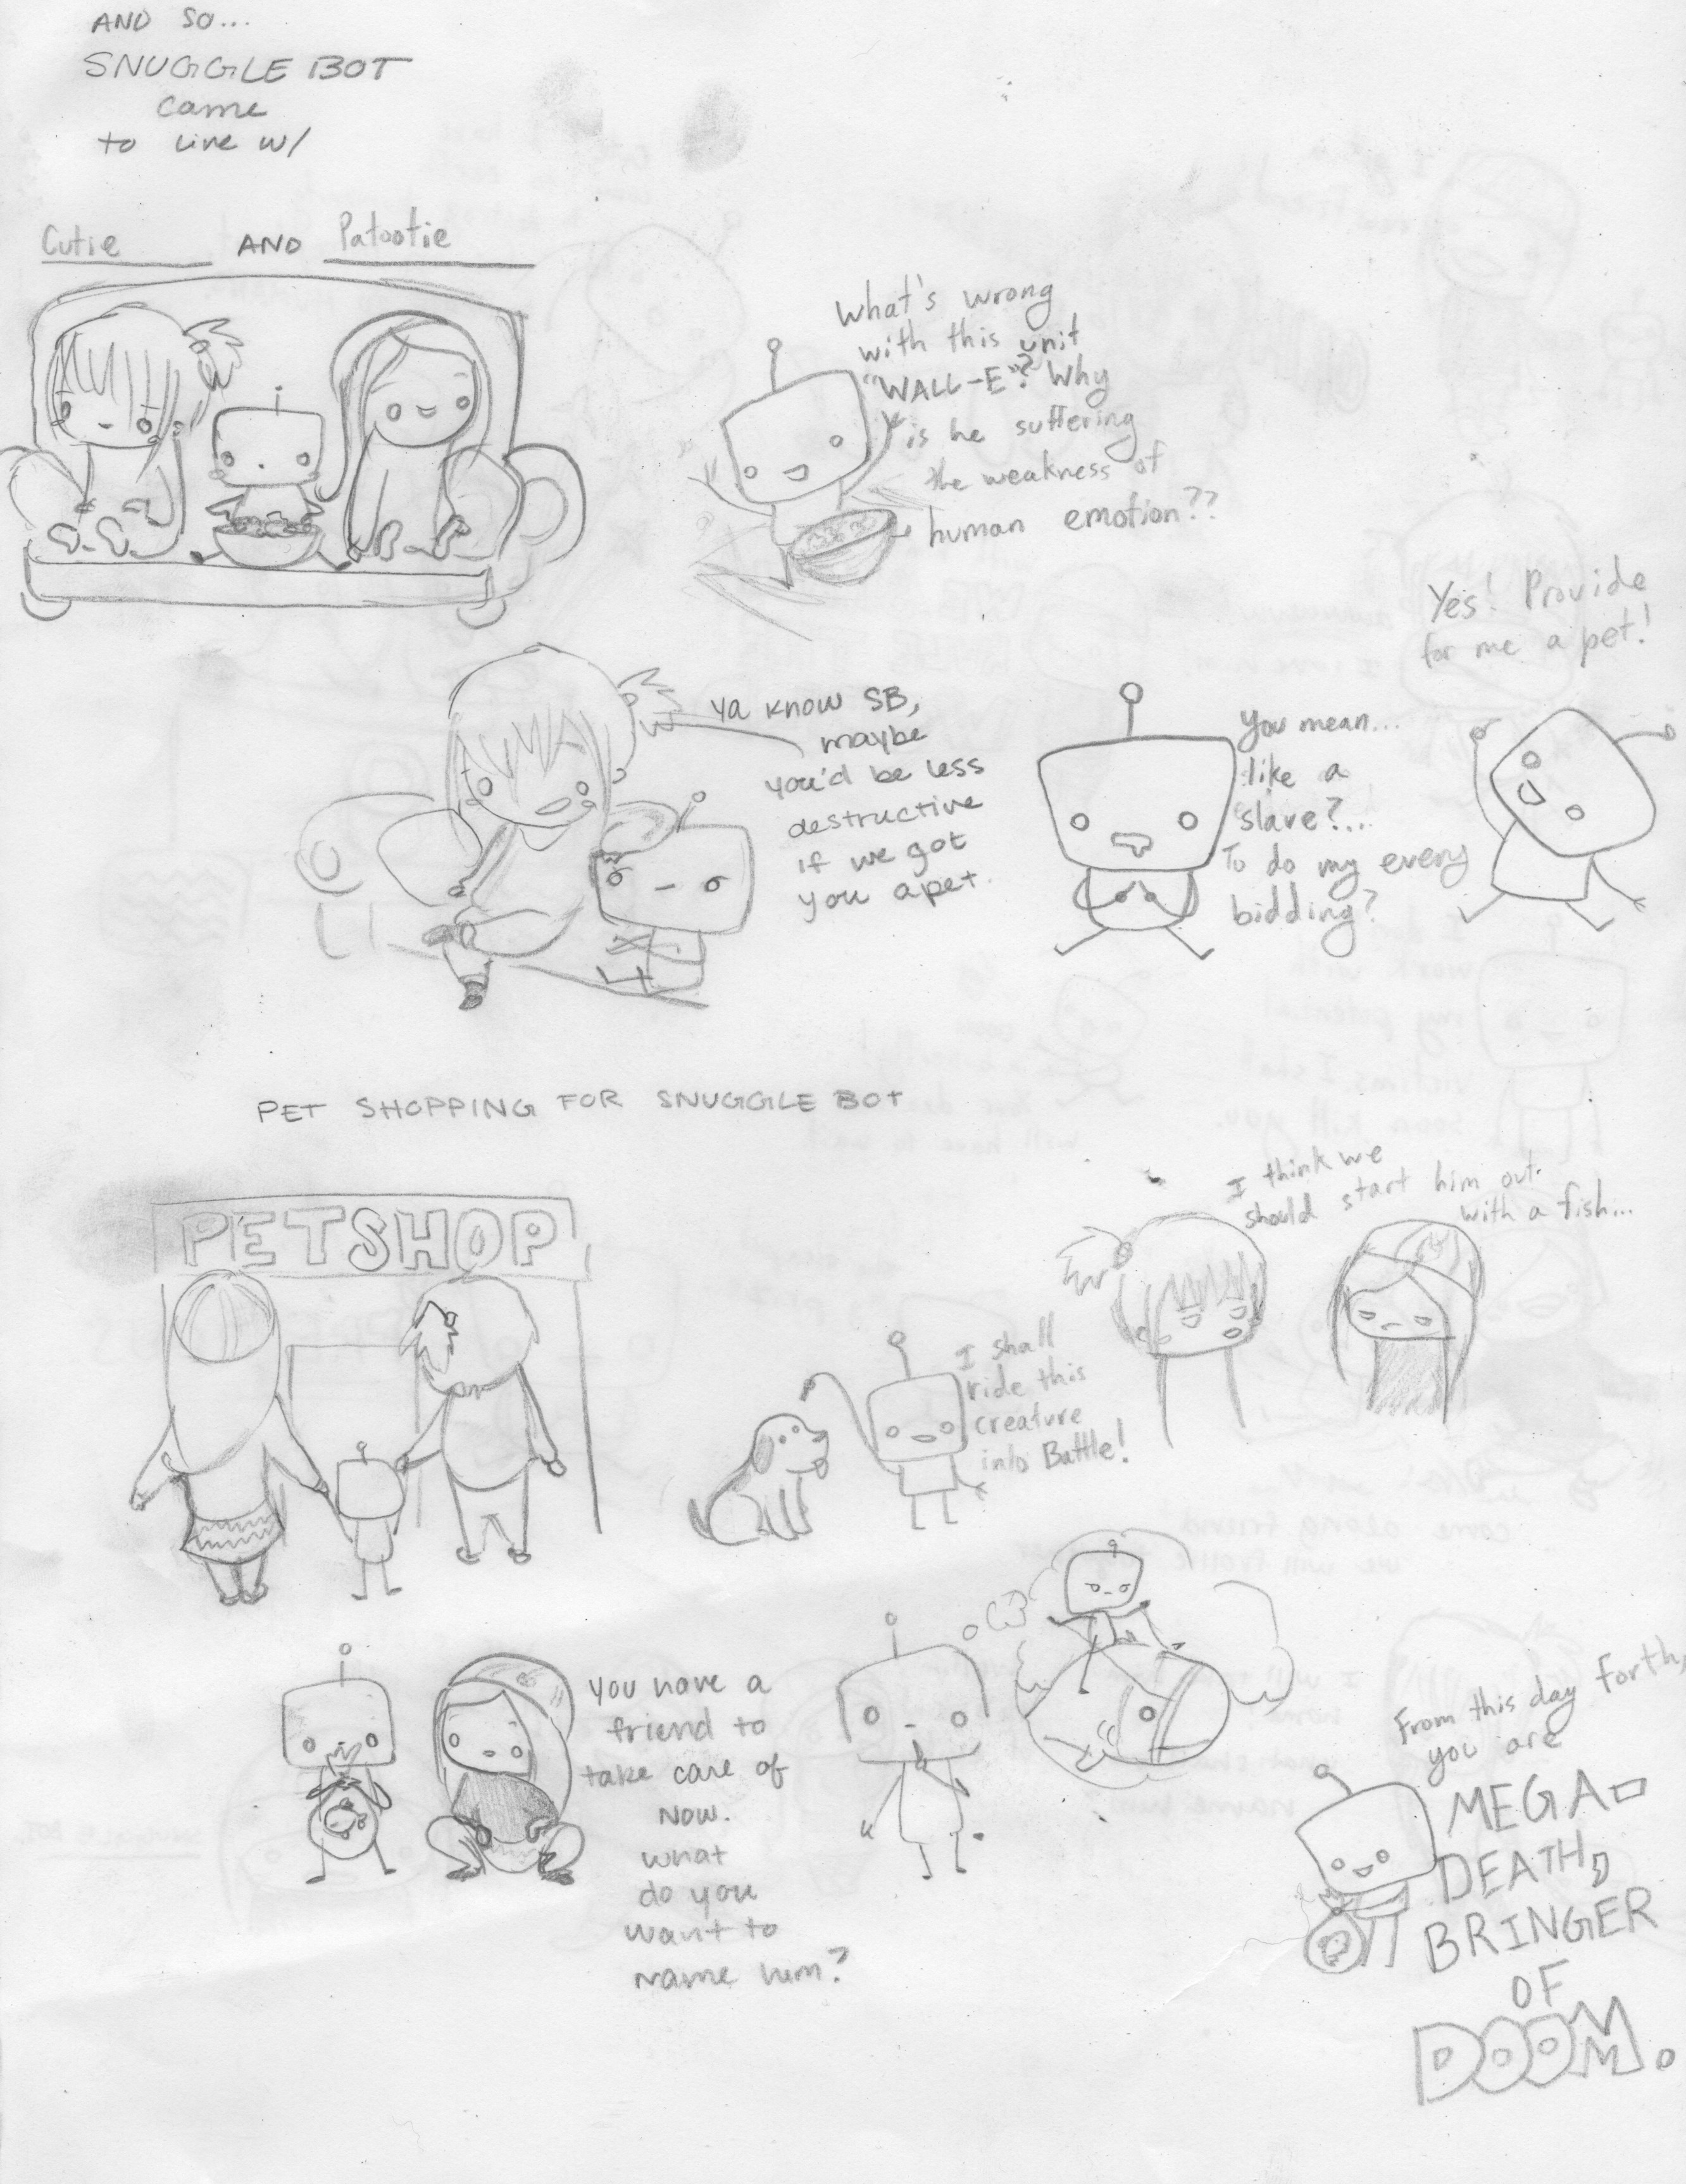 AND SO...
SNUGGLE BOT
came
to live w/
Cutie AND Patootie
What's wrong
with this unit
"WALL-E"? Why
is he suffering
the weakness of
human emotion??
Ya know SB,
maybe
you'd be less
destructive
if we got
you a pet.
You mean...
like a
slave?...
To do my every
bidding?
Yes! Provide
for me a pet!
PET SHOPPING FOR SNUGGLE BOT
PETSHOP
I shall
ride this
creature
into Battle!
I think we
should start him out
with a fish...
You have a
friend to
take care of
now.
what
do you
want to
name him?
From this day forth,
you are
MEGA-
DEATH,
BRINGER
OF
DOOM.